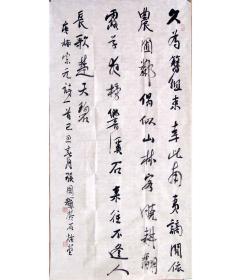 久為簪組束幸此南夷謫閒依
農圃鄰偶似山林客曉耕翻
露草夜榜響溪石来往不逢人
長歌楚天碧
唐柳宗元詩一首己丑春月張國